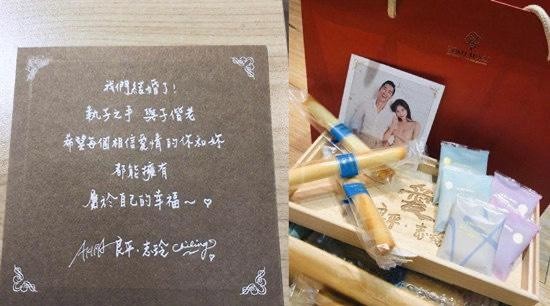 我們結婚了!
執子之手 與子偕老
希望每個相信愛情的你和妳
都能擁有
屬於自己的幸福~♡
AKIRA 良平·志玲 chiling♡
愛
良平·志玲